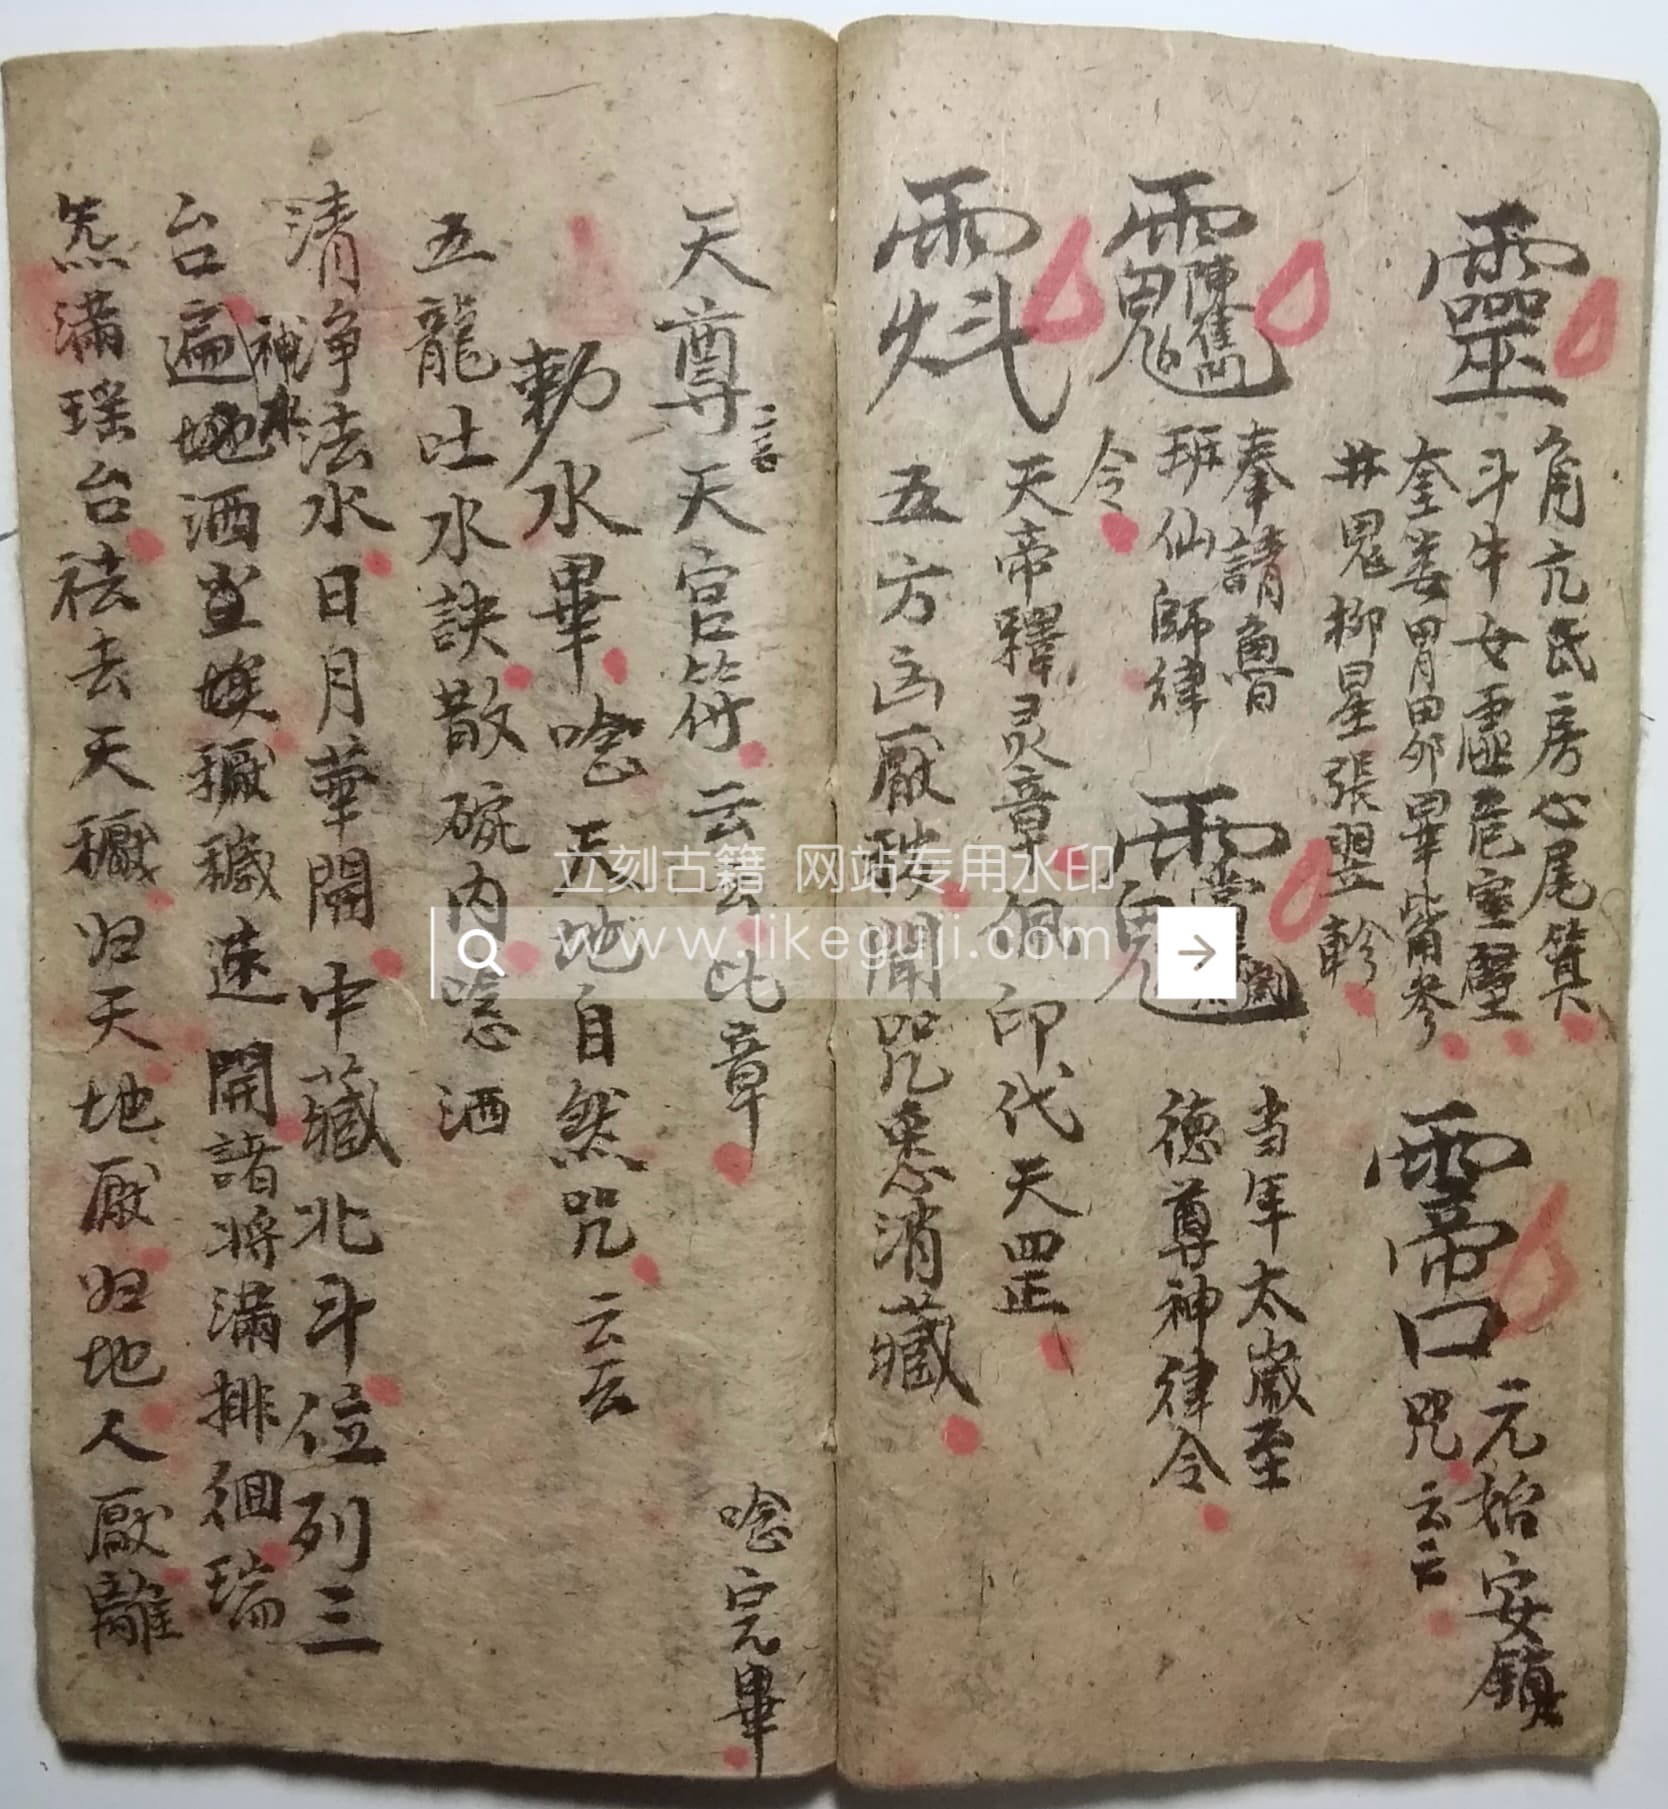 靈
角亢氐房心尾箕
斗牛女虛危室壁
奎婁胃昴畢觜參
井鬼柳星張翌軫
元始安鎮
咒云云
奉請魯
班仙師律
令
当年太歲至
德尊神律令
天帝釋灵章佩印代天罡
五方凶厭 聞咒悉消藏
天尊 天官符云云此章
唸完畢
勅水畢唸天地自然咒云云
五龍吐水訣散碗内唸洒
清净法水日月華開中藏北斗位列三
台神水遍地洒 埃 穢速開諸將滿排徊瑞
炁滿瑶台祛去天 归天地厭归地人厭離
立刻古籍 网站专用水印
www.likeguji.com